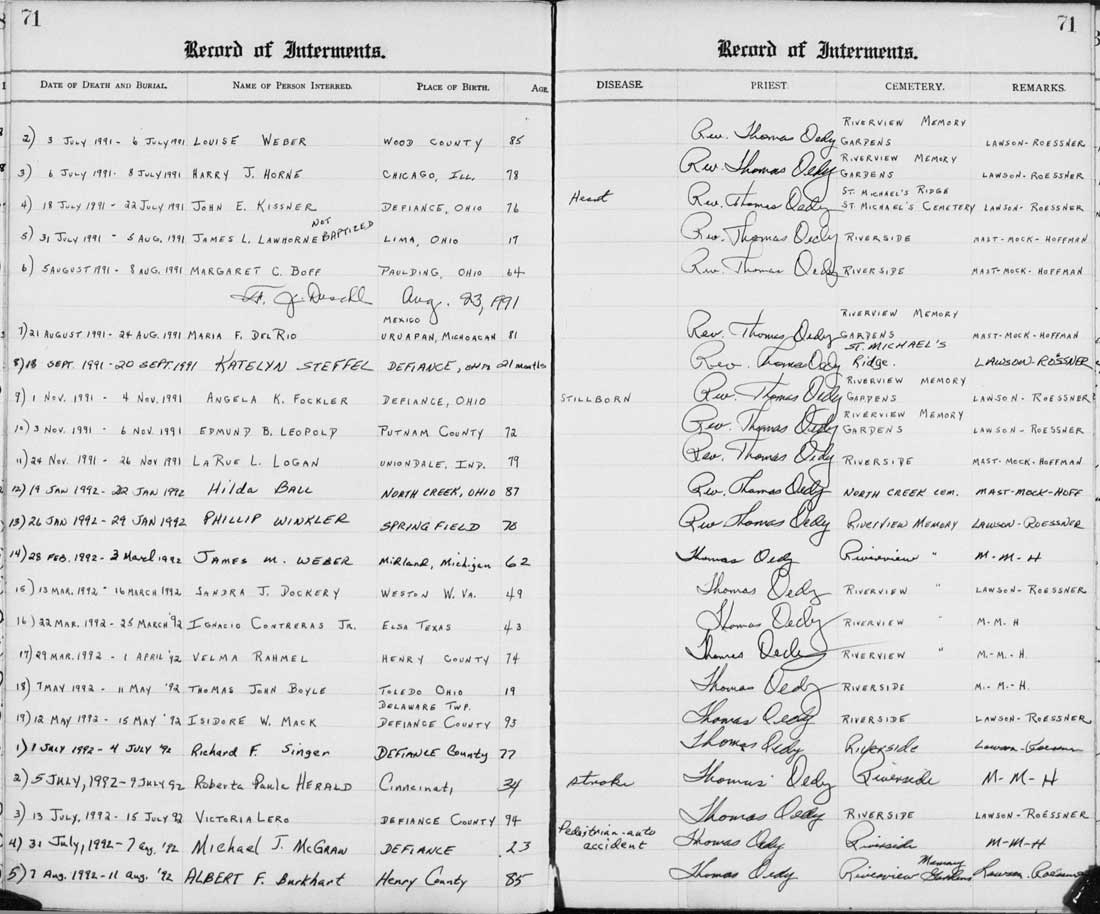 71
71
Record of Interments.
Record of Interments.
DATE OF DEATH AND BURIAL. NAME OF PERSON INTERRED. PLACE OF BIRTH. AGE DISEASE. PRIEST. CEMETERY. REMARKS.
RIVERVIEW MEMORY
2) 3 JULY 1991 - 6 JULY 1991 LOUISE WEBER WOOD COUNTY 85 Rev. Thomas Oedy GARDENS LAWSON-ROESSNER
RIVERVIEW MEMORY
3) 6 JULY 1991 - 8 JULY 1991 HARRY J. HORNE CHICAGO, ILL. 78 Rev. Thomas Oedy GARDENS LAWSON-ROESSNER
ST. MICHAEL'S RIDGE
4) 18 JULY 1991 - 22 JULY 1991 JOHN E. KISSNER DEFIANCE, OHIO 76 Heart Rev. Thomas Oedy ST. MICHAEL'S CEMETERY LAWSON-ROESSNER
5) 31 JULY 1991 - 5 AUG. 1991 JAMES L. LAWHORNE NOT BAPTIZED LIMA, OHIO 17 Rev. Thomas Oedy RIVERSIDE MAST-MOCK-HOFFMAN
6) 5 AUGUST 1991 - 8 AUG. 1991 MARGARET C. BOFF PAULDING, OHIO 64 Rev. Thomas Oedy RIVERSIDE MAST-MOCK-HOFFMAN
Aug. 23, 1991
MEXICO RIVERVIEW MEMORY
7) 21 AUGUST 1991 - 24 AUG. 1991 MARIA F. DELRIO URUAPAN, MICHOACAN 81 Rev. Thomas Oedy GARDENS MAST-MOCK-HOFFMAN
ST. MICHAEL'S
8) 18 SEPT. 1991 - 20 SEPT. 1991 KATELYN STEFFEL DEFIANCE, OHIO 21 months Rev. Thomas Oedy Ridge. LAWSON-ROESSNER
RIVERVIEW MEMORY
9) 1 NOV. 1991 - 4 NOV. 1991 ANGELA K. FOCKLER DEFIANCE, OHIO STILLBORN Rev. Thomas Oedy GARDENS LAWSON-ROESSNER
RIVERVIEW MEMORY
10) 3 NOV. 1991 - 6 NOV. 1991 EDMUND B. LEOPOLD PUTNAM COUNTY 72 Rev. Thomas Oedy GARDENS LAWSON-ROESSNER
11) 24 NOV. 1991 - 26 NOV 1991 LARUE L. LOGAN UNIONDALE, IND. 79 Rev. Thomas Oedy RIVERSIDE MAST-MOCK-HOFFMAN
12) 19 JAN 1992 - 22 JAN 1992 Hilda BALL NORTH CREEK, OHIO 87 Rev. Thomas Oedy NORTH CREEK CEM. MAST-MOCK-HOFF
13) 26 JAN 1992 - 29 JAN 1992 PHILLIP WINKLER SPRINGFIELD 78 Rev Thomas Oedy RIVERVIEW MEMORY LAWSON-ROESSNER
14) 28 FEB. 1992 - 3 March 1992 JAMES M. WEBER Midland, Michigan 62 Thomas Oedy Riverview " M-M-H
15) 13 MAR. 1992 - 16 MARCH 1992 SANDRA J. DOCKERY WESTON W. VA. 49 Thomas Oedy RIVERVIEW " LAWSON-ROESSNER
16) 22 MAR. 1992 - 25 MARCH '92 IGNACIO CONTRERAS JR. ELSA TEXAS 43 Thomas Oedy RIVERVIEW " M-M.H
17) 29 MAR. 1992 - 1 APRIL '92 VELMA RAHMEL HENRY COUNTY 74 Thomas Oedy RIVERVIEW " M.-M.-H.
18) 7 MAY 1992 - 11 MAY '92 THOMAS JOHN BOYLE TOLEDO OHIO 19 Thomas Oedy RIVERSIDE M.-M.-H.
DELAWARE TWP.
19) 12 MAY 1992 - 15 MAY '92 ISIDORE W. MACK DEFIANCE COUNTY 93 Thomas Oedy RIVERSIDE LAWSON-ROESSNER
1) 1 JULY 1992 - 4 JULY '92 Richard F. Singer DEFIANCE County 77 Thomas Oedy Riverside Lawson-Roessner
2) 5 JULY, 1992 - 9 JULY 92 Roberta Paula HERALD Cincinnati 34 stroke Thomas Oedy Riverside M-M-H
3) 13 JULY, 1992 - 15 JULY 92 VICTORIA LERO DEFIANCE COUNTY 94 Thomas Oedy RIVERSIDE LAWSON-ROESSNER
Pedestrian-auto
4) 31 July, 1992 - 7 aug. '92 Michael J. McGRAW DEFIANCE 23 accident Thomas Oedy Riverside M-M-H
Memory
5) 7 Aug. 1992 - 11 aug. '92 ALBERT F. Burkhart Henry County 85 Thomas Oedy Riverview Gardens Lawson-Roessner